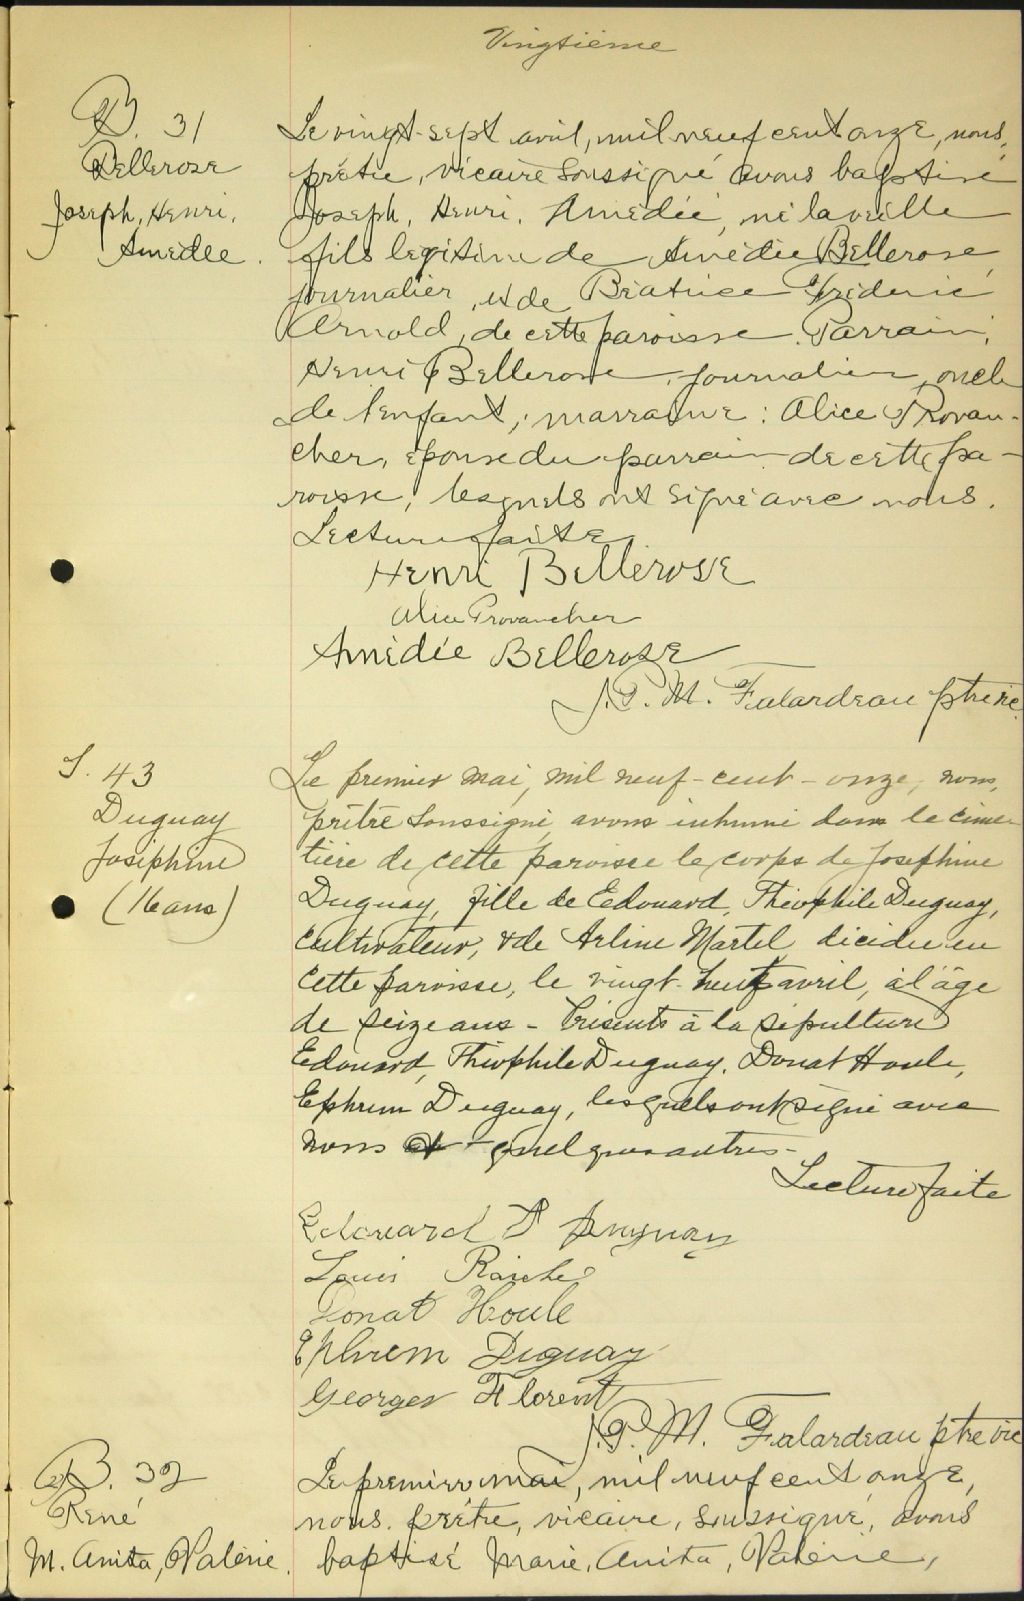 Vingtième
B. 31
Bellerose
Joseph, Henri,
Amédée.
Le vingt-sept avril, mil neuf cent onze, nous,
prêtre, vicaire soussigné avons baptisé
Joseph, Henri, Amédée, né la veille
fils légitime de Amédée Bellerose,
journalier, et de Béatrice Frédéric
Arnold, de cette paroisse. Parrain,
Henri Bellerose, journalier, oncle
de l'enfant; marraine: Alice Provan-
cher, épouse du parrain de cette pa-
roisse, lesquels ont signé avec nous.
Lecture faite
Henri Bellerose
Alice Provancher
Amédée Bellerose
J. P. M. Falardeau ptre vic.
S. 43
Duguay
Joséphine
(16 ans)
Le premier mai, mil neuf-cent-onze, nous,
prêtre soussigné, avons inhumé dans le cime-
tière de cette paroisse le corps de Joséphine
Duguay, fille de Edouard, Théophile Duguay,
cultivateur, & de Arline Martel, décédée en
cette paroisse, le vingt-neuf avril, à l'âge
de seize ans - Présents à la sépulture
Edouard, Théophile Duguay, Donat Houle,
Ephrem Duguay, lesquels ont signé avec
nous et quelques autres-
Lecture faite
Edouard T Duguay
Louis Raiche
Donat Houle
Ephrem Duguay
Georges Florent
J. P. M. Falardeau ptre vic
B. 32
René
M. Anita, Valérie.
Le premier mai, mil neuf cent onze,
nous prêtre, vicaire, soussigné, avons
baptisé Marie, Anita, Valérie,